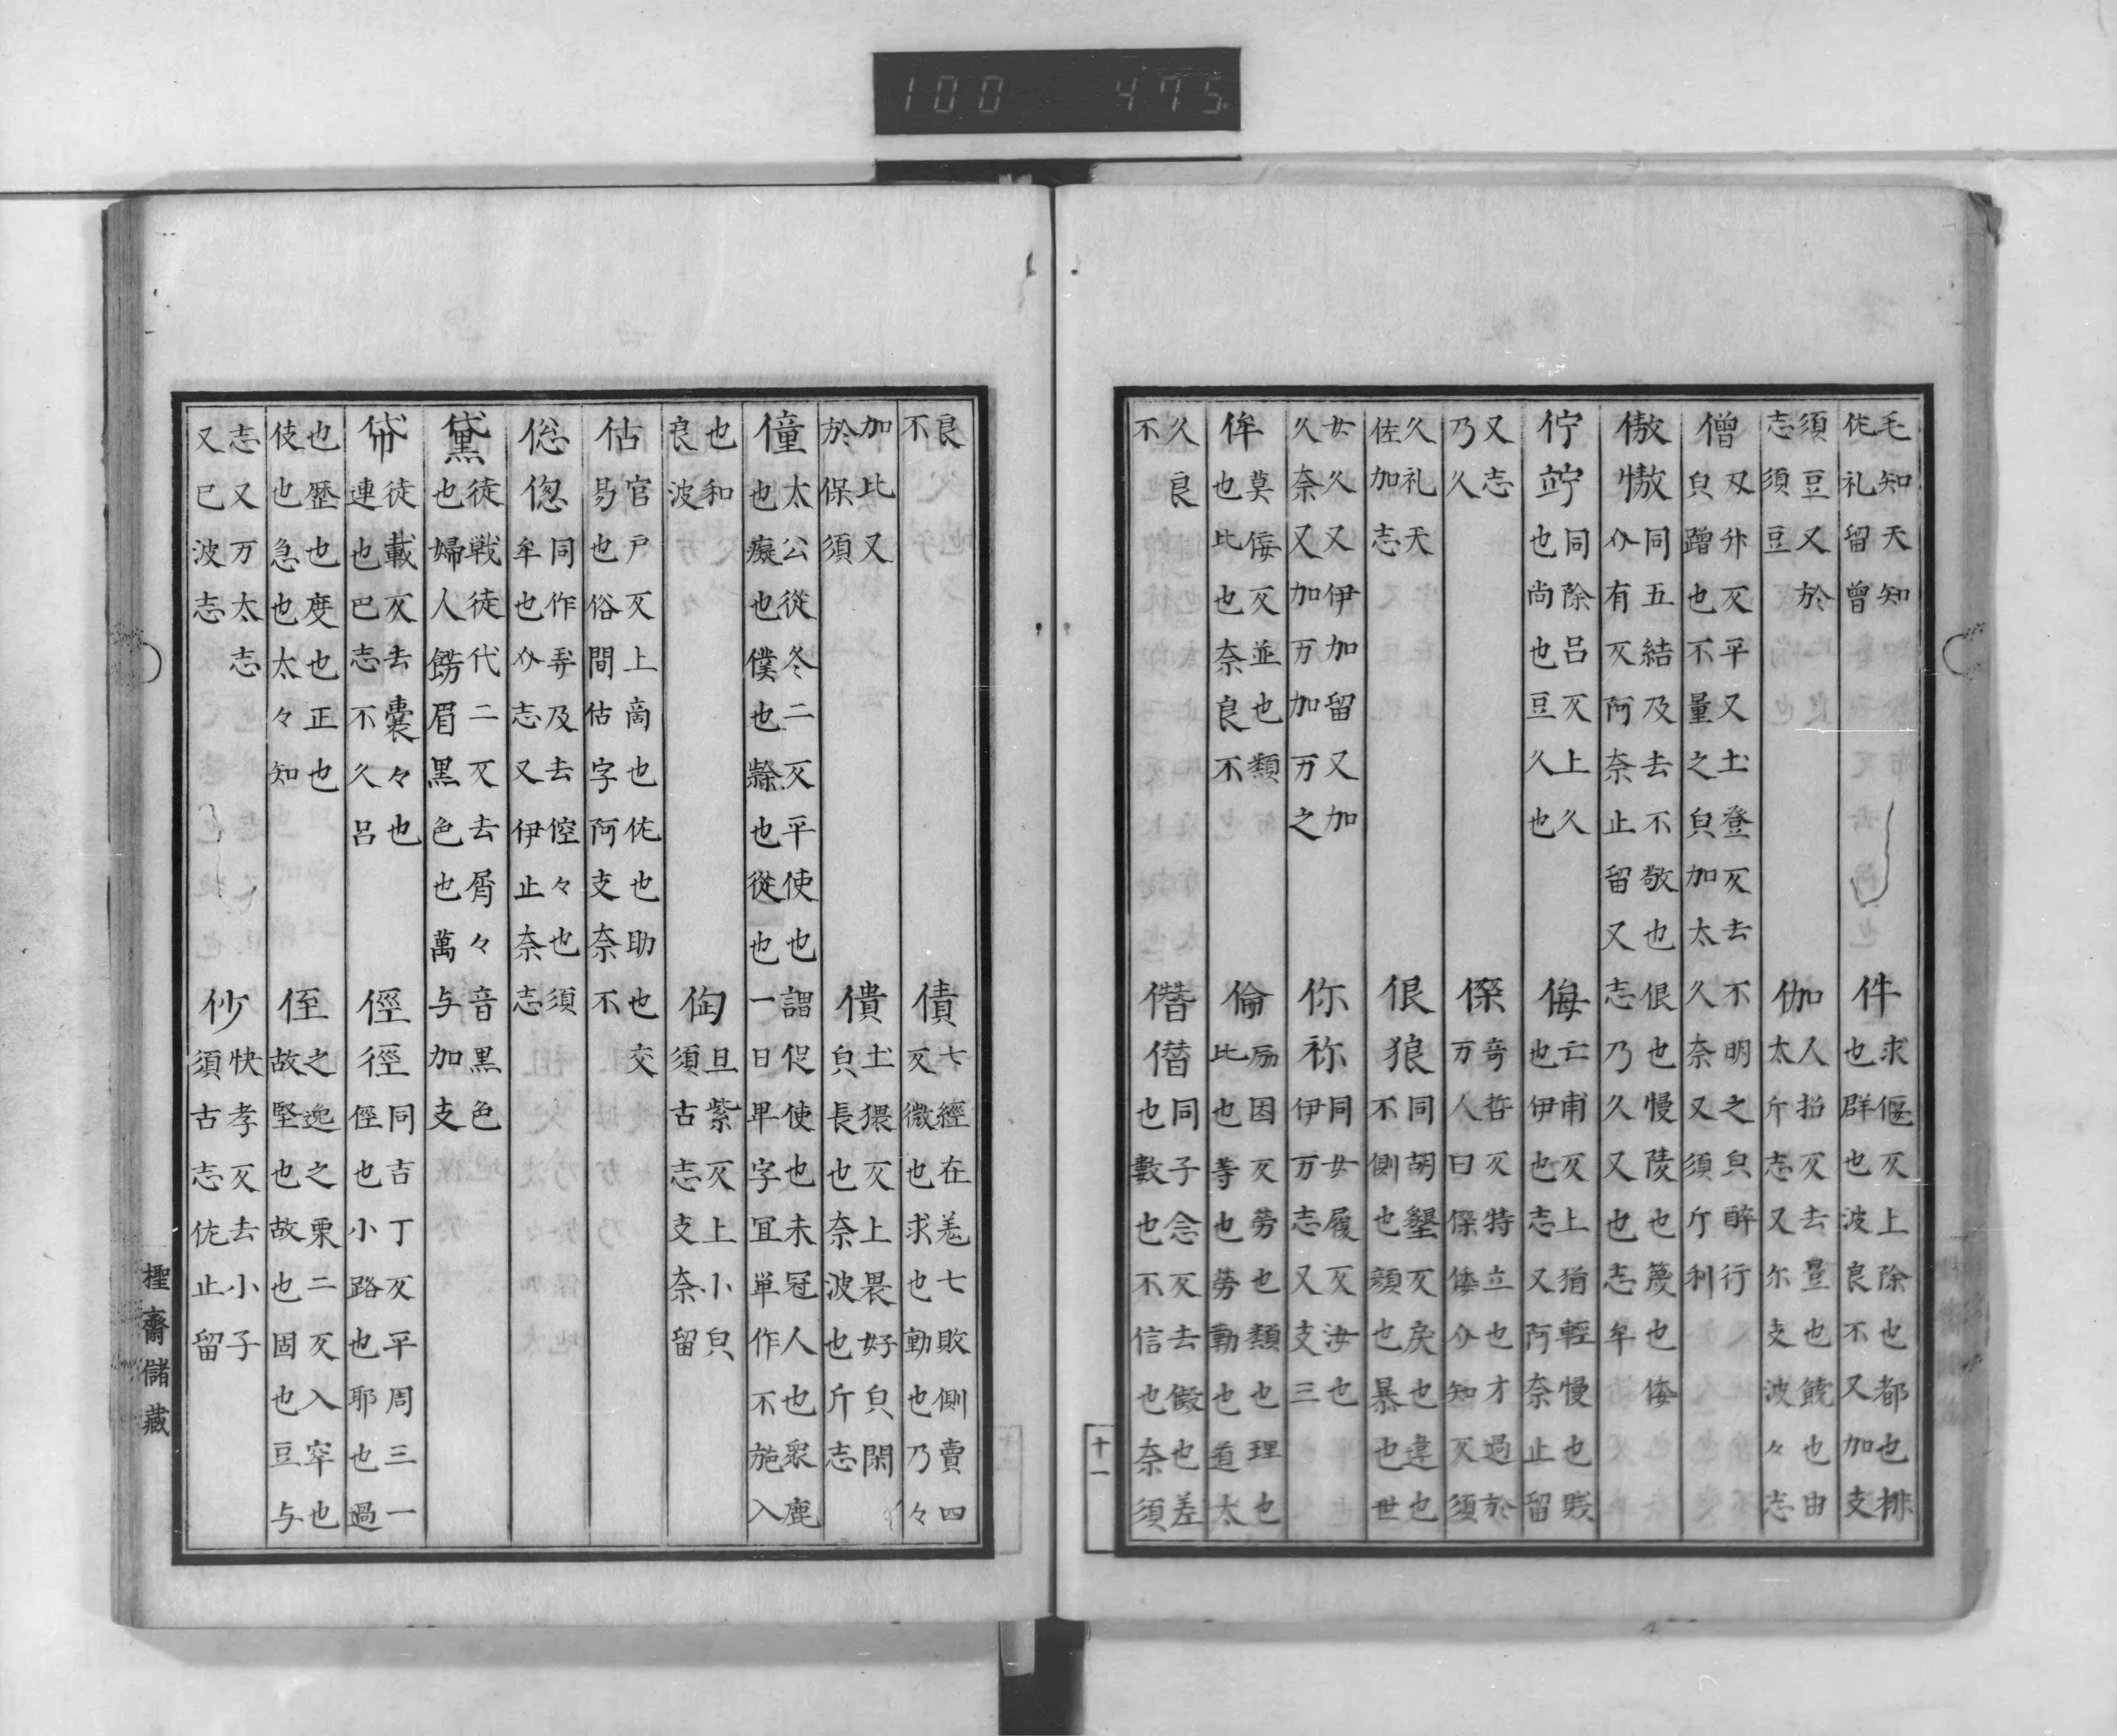 100 475
毛知天知佐礼留曽件求偃反上除也都也排也群也波良不又加支
須豆又於志須豆伽人招反去量也饒也由太斤志又尓支波々志
僧又弁反平又土登反去不明之皃醉行皃蹭也不量之皃加太久奈又須斤利
傲慠同五結及去不敬也佷也慢陵也篾也侮尒有反阿奈止留又志乃久又也志牟
佇竚同除呂反上久也尚也豆久也侮亡甫反上猶輕慢也賎也伊也志又阿奈止留
又志乃久傑竒哲反特立也才過於万人曰傑倭尒知反須
久礼天佐加志佷狼同胡墾反戾也違也不側也顔也暴也世
女久又伊加留又加久奈又加万加万之你祢同女履反汝也伊万志又支三
侔莫侫反並也類也比也奈良不倫励因反劳也類也理也比也等也劳動也道太
久良不僣僭同子念反去儗也差也數也不信也奈須
十一
良不債七經在恙七敗側賣四反微也求也動也乃々
加比又於保須僓土猥反上畏好皃閑皃長也奈波也斤志
僮太公從冬二反平使也謂促使也未冠人也衆鹿也癡也僕也也從也一曰卑字冝単作不施入
也和良波旦紫反上小皃須古志支奈留
估官戸反上啇也佐也助也交易也俗間估字阿支奈不
偬偬同作弄及去倥々也須牟也尒志又伊止奈志
黛徒戦徒代二反去屑々音黒色也婦人餝眉黒色也萬与加支
帒徒載反去囊々也連也巴志不久呂俓徑同吉丁反平周三一俓也小路也耶也過
也歷也度也正也伎也急也太々知侄之逸之栗二反入窂也故堅也故也固也豆与
志又万太志又已波志仯快孝反去小子須古志佐止留
檉齋儲藏